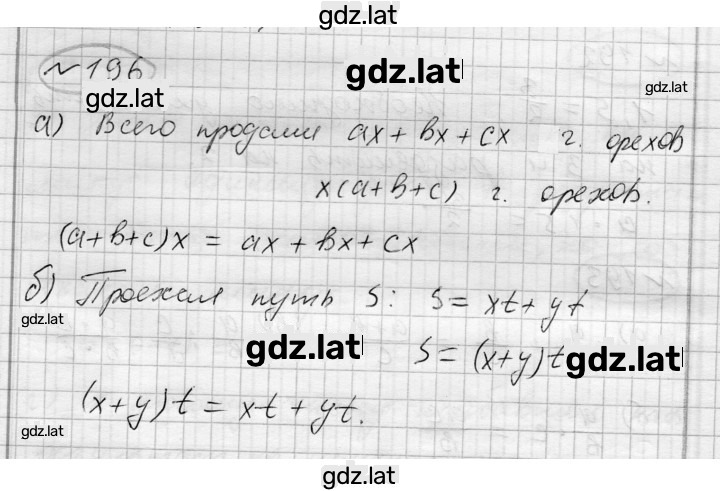 gdz.lat
№ 196
gdz.lat
gdz.lat
gdz.lat
а) Всего продали ax + bx + cx г. орехов
x(a+b+c) г. орехов.
(a+b+c)x = ax + bx + cx
б) Проехал путь S: S = xt + yt
gdz.lat
gdz.lat
S = (x+y)t
gdz.lat
(x+y)t = xt + yt.
gdz.lat
gdz.lat